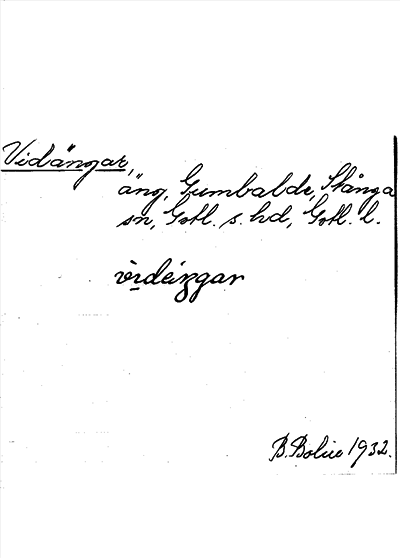 Vidängar,
äng, Gumbalde, Stånga
sn, Gotl. s. hd, Gotl. l.
vìdéiŋgar
B. Bolin 1932.